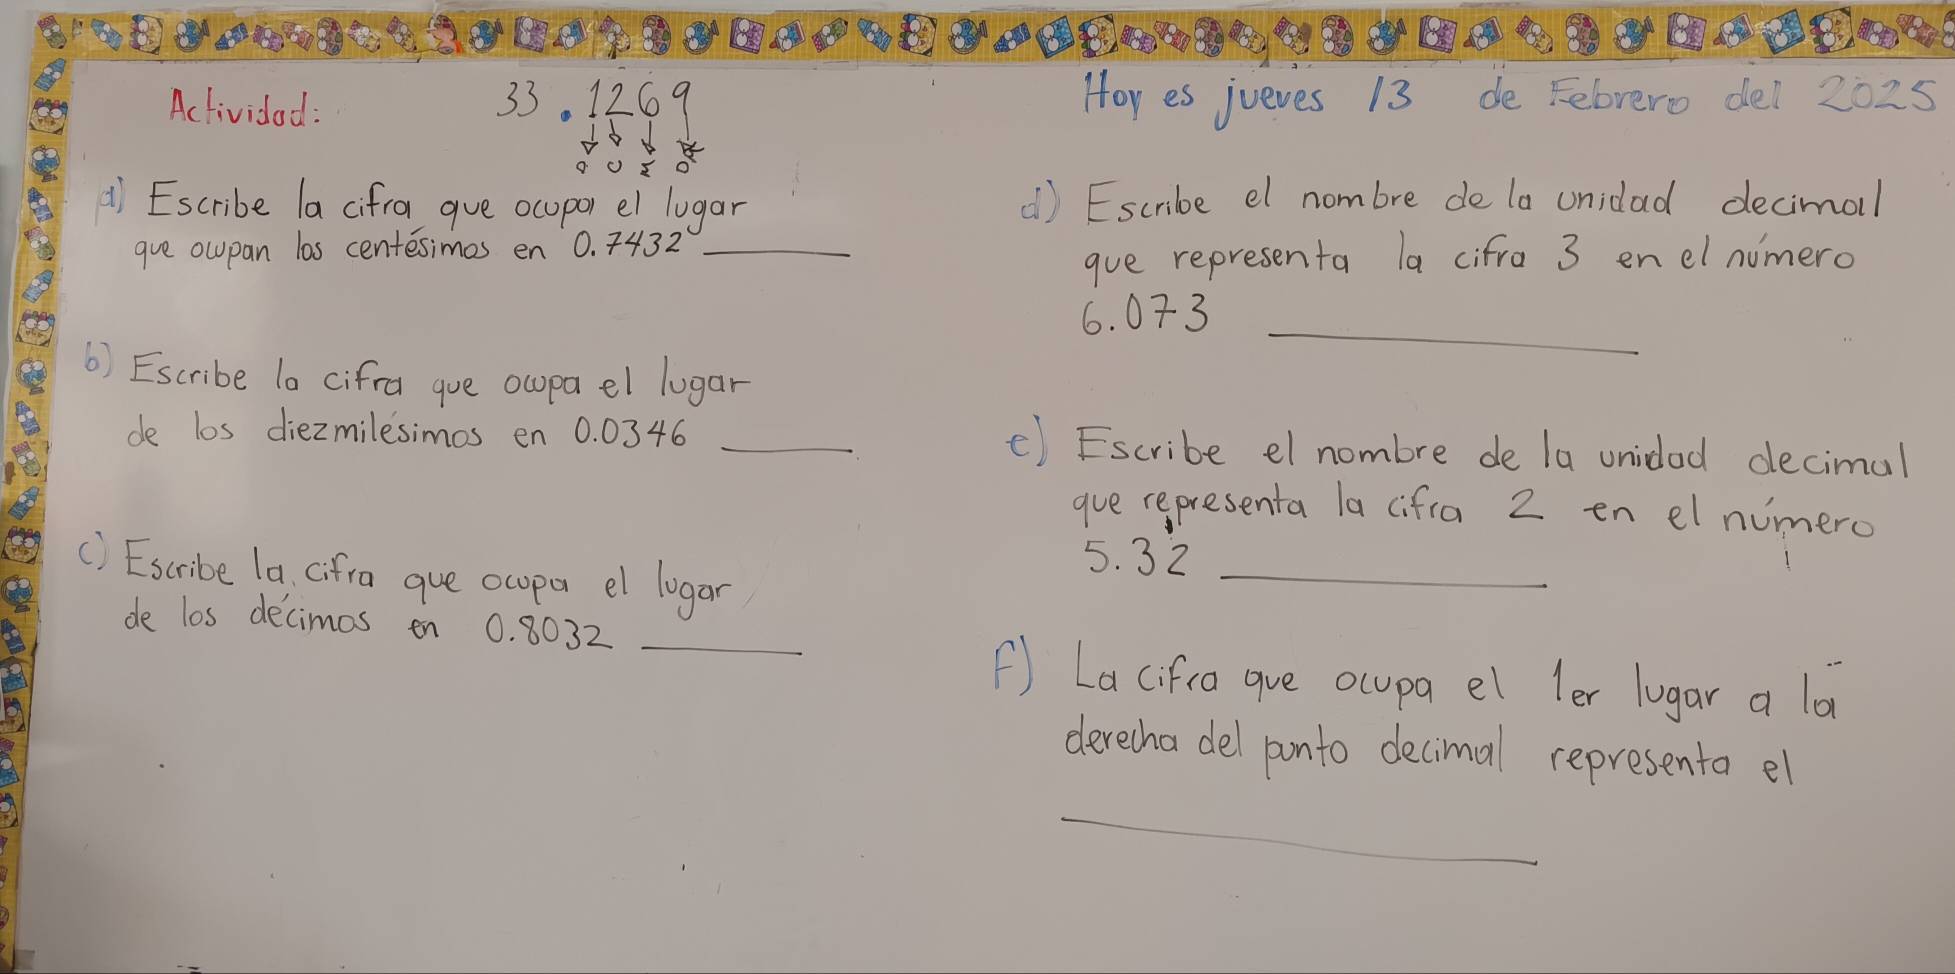 Actividad:
33.1269
D C M DM
Hoy es jueves 13 de Febrero del 2025
a) Escribe la cifra que ocupa el lugar
que ocupan los centésimos en 0.7432 ______
b) Escribe la cifra que ocupa el lugar
de los diezmilésimos en 0.0346 ______
c) Escribe la cifra que ocupa el lugar
de los décimos en 0.8032 ______
d) Escribe el nombre de la unidad decimal
que representa la cifra 3 en el número
6.073 ______
e) Escribe el nombre de la unidad decimal
que representa la cifra 2 en el número
5.32 ______
F) La cifra que ocupa el 1er lugar a la
derecha del punto decimal representa el
______